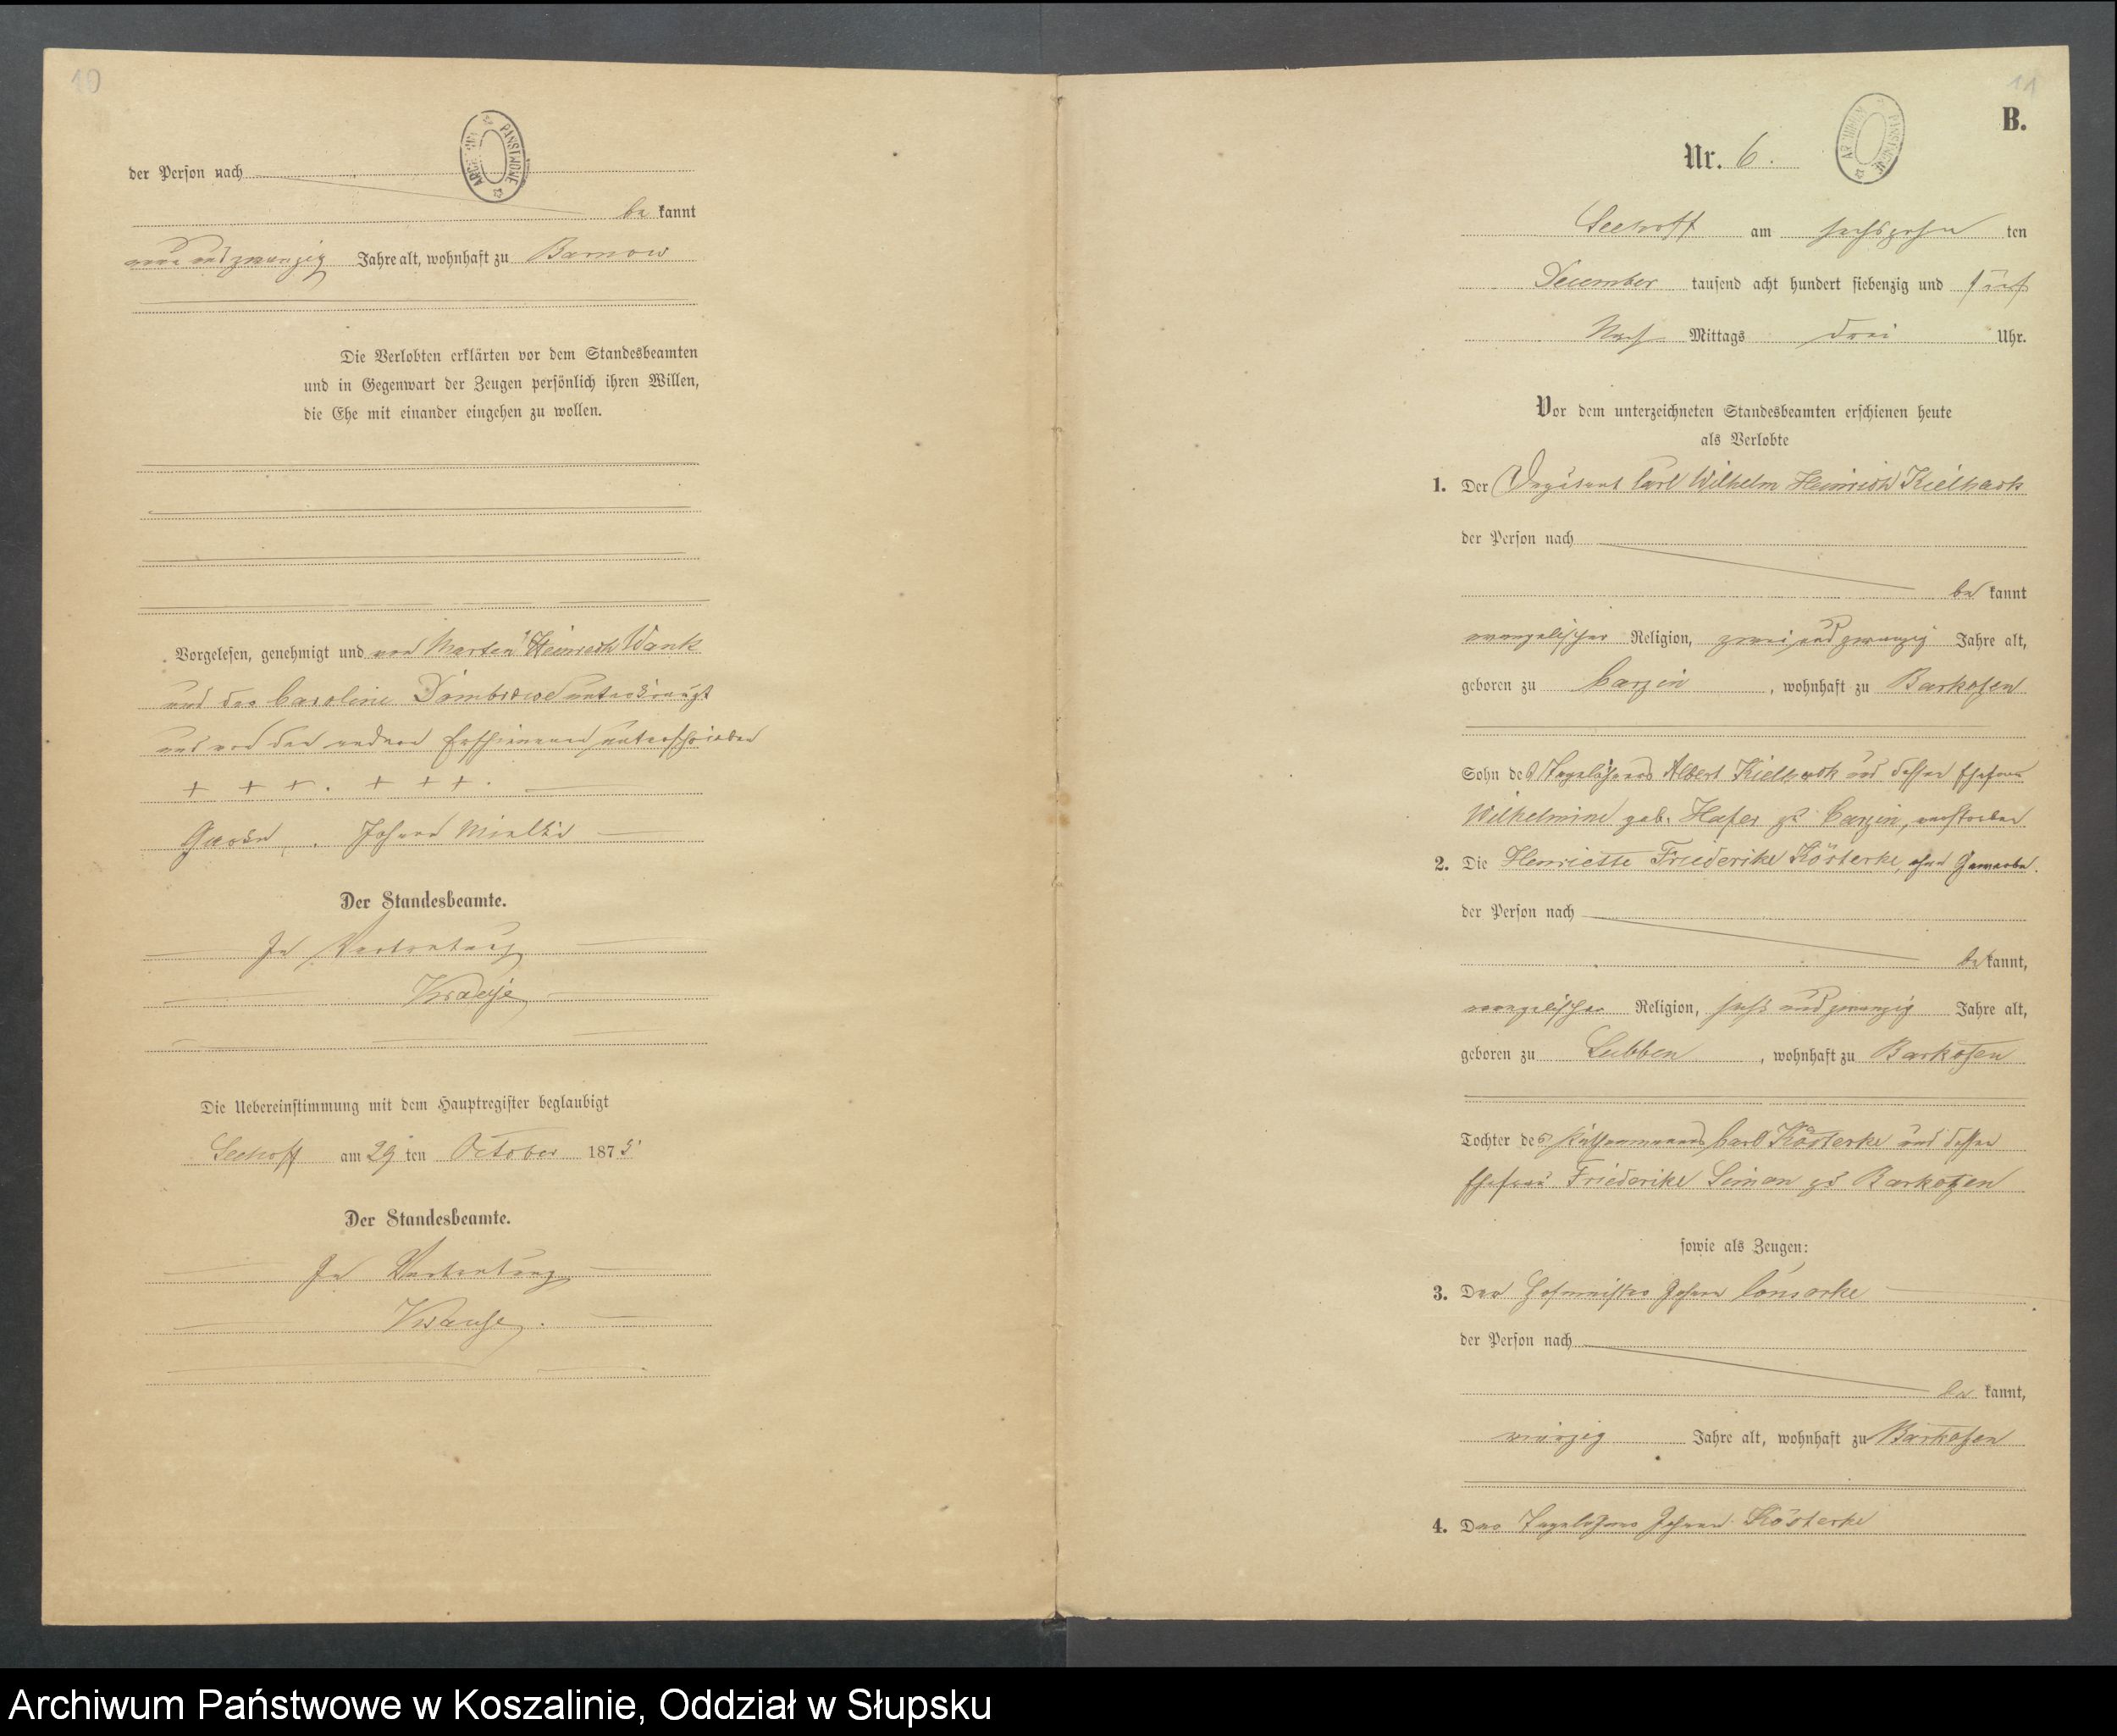 10
ARCHIWUM PAŃSTWOWE
der Person nach
be kannt
neun und zwanzig Jahre alt, wohnhaft zu Barnow
Die Verlobten erklärten vor dem Standesbeamten
und in Gegenwart der Zeugen persönlich ihren Willen,
die Ehe mit einander eingehen zu wollen.
Vorgelesen, genehmigt und von Heinrich Wank
und der Caroline unterkreuzt
und von den andern Erschienenen unterschrieben
+ + +. + + +.
Johann Mielke
Der Standesbeamte.
In Vertretung
Krause
Die Uebereinstimmung mit dem Hauptregister beglaubigt
Seehoff am 29 ten October 1875
Der Standesbeamte.
In Vertretung
Krause.
11
B.
ARCHIWUM PAŃSTWOWE
Nr. 6.
Seehoff am sechszehn ten
December tausend acht hundert siebenzig und fünf
Nach Mittags drei Uhr.
Vor dem unterzeichneten Standesbeamten erschienen heute
als Verlobte
1. Der Carl Wilhelm Heinrich Kielhack
der Person nach
be kannt
evangelischer Religion, zwei und zwanzig Jahre alt,
geboren zu Carzin, wohnhaft zu Barkotzen
Sohn des Tagelöhners Albert Kielhack und dessen Ehefrau
Wilhelmine geb. Hafer zu Carzin, verstorben
2. Die Henriette Friederike Kösterke, ohne Gewerbe.
der Person nach
be kannt,
evangelischer Religion, sechs und zwanzig Jahre alt,
geboren zu Lubben, wohnhaft zu Barkotzen
Tochter des Carl Kösterke und dessen
Ehefrau Friederike Simon zu Barkotzen
sowie als Zeugen:
3. Der Hofmeister Johann
der Person nach
be kannt,
vierzig Jahre alt, wohnhaft zu Barkotzen
4. Der Tagelöhner Johann Kösterke
Archiwum Państwowe w Koszalinie, Oddział w Słupsku